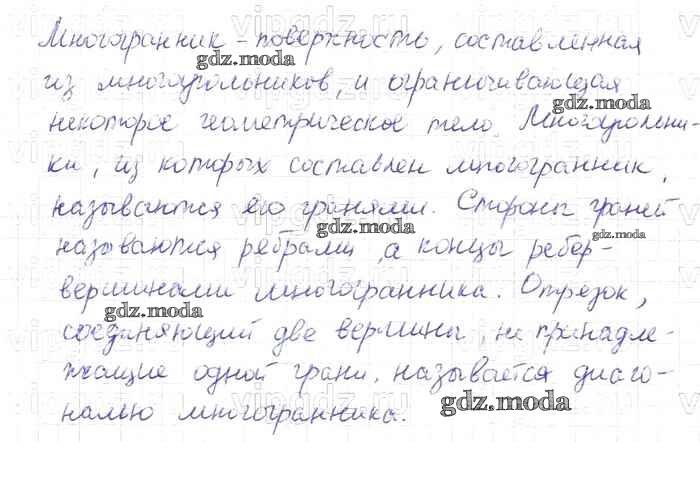 Многогранник - поверхность, составленная
из многоугольников, и ограничивающая
некоторое геометрическое тело. Многоугольни-
ки, из которых составлен многогранник,
называются его гранями. Стороны граней
называются ребрами, а концы ребер-
вершинами многогранника. Отрезок,
соединяющий две вершины, не принадле-
жащие одной грани, называется диаго-
налью многогранника.
gdz.moda
gdz.moda
gdz.moda
gdz.moda
gdz.moda
gdz.moda